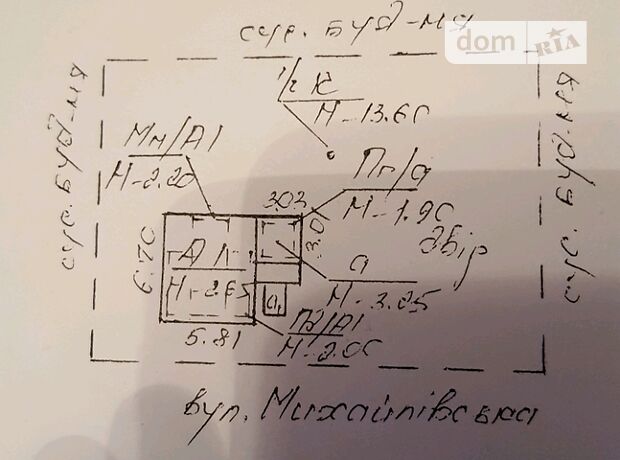 сус. буд-ня
dom RIA
1/2 К
H-13.60
Мн/А1
H-2.20
сус. буд-ня
сус. буд-ня
3.03
Пг/а
H-1.90
3.0
двір
А1
6.70
H-2.65
а
H-3.25
а1
5.81
Пд/А1
H-2.00
вул. Михайлівська